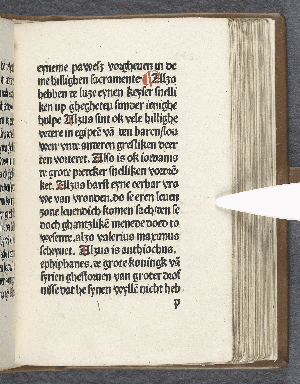 eyneme pawesz vorgheuen in de
me hillighen sacramente Alzo
hebben te luze eynen keyser snelli
ken up ghegheten sunder ienighe
hulpe Alzus sint ok vele hillighe
vedere in egiptē vā ten
wen vnte anderen gresliken deer
ten vorteret. Also is ok iordanis
te grote prediker snelliken vordrē
ket. Alzus barst eyne erbar vro
we van vronden. do se eren
zone leuendich komen sach den se
doch ghantzliken menede doed to
wesente. alzo valerius maximus
scheyuet. Alzus is anthiochus.
ephiphanes. te grote koningk vā
syrien ghestoruen van groter drof
nisse dat he synen wyllē nicht heb
p